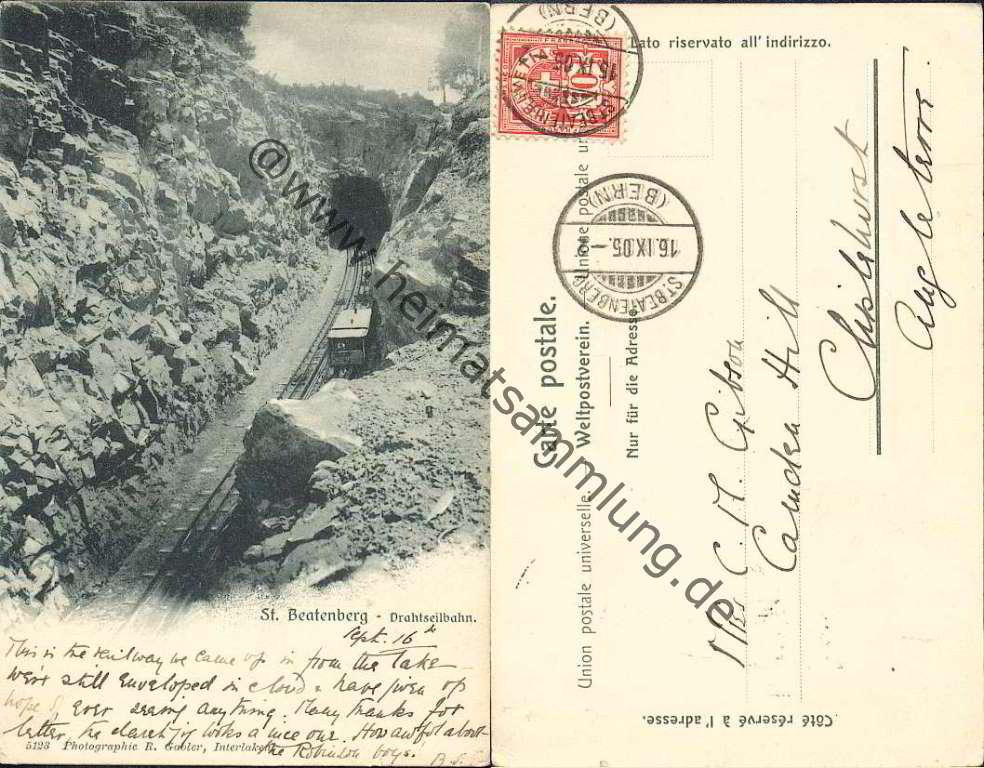 St. Beatenberg - Drahtseilbahn.
Sept. 16th
This is the railway we came up in from the lake
we're still enveloped in cloud & have given up
hope of ever seeing anything. Many thanks for
letter, the claret jug looks a nice one. How awful about
the Robinson boys!
5123 Photographie R. Gabler, Interlaken
@www.heimatsammlung.de
Lato riservato all' indirizzo.
Carte postale.
Union postale universelle. Weltpostverein. Unione postale un
Nur für die Adresse.
Côté réservé à l'adresse.
HELVETIA
10
ST. BEATENBERG
16.IX.05
(BERN)
ST. BEATENBERG
16.IX.05.-
(BERN)
C. M. Gibson
Camden Hill
Chislehurst
Angleterre